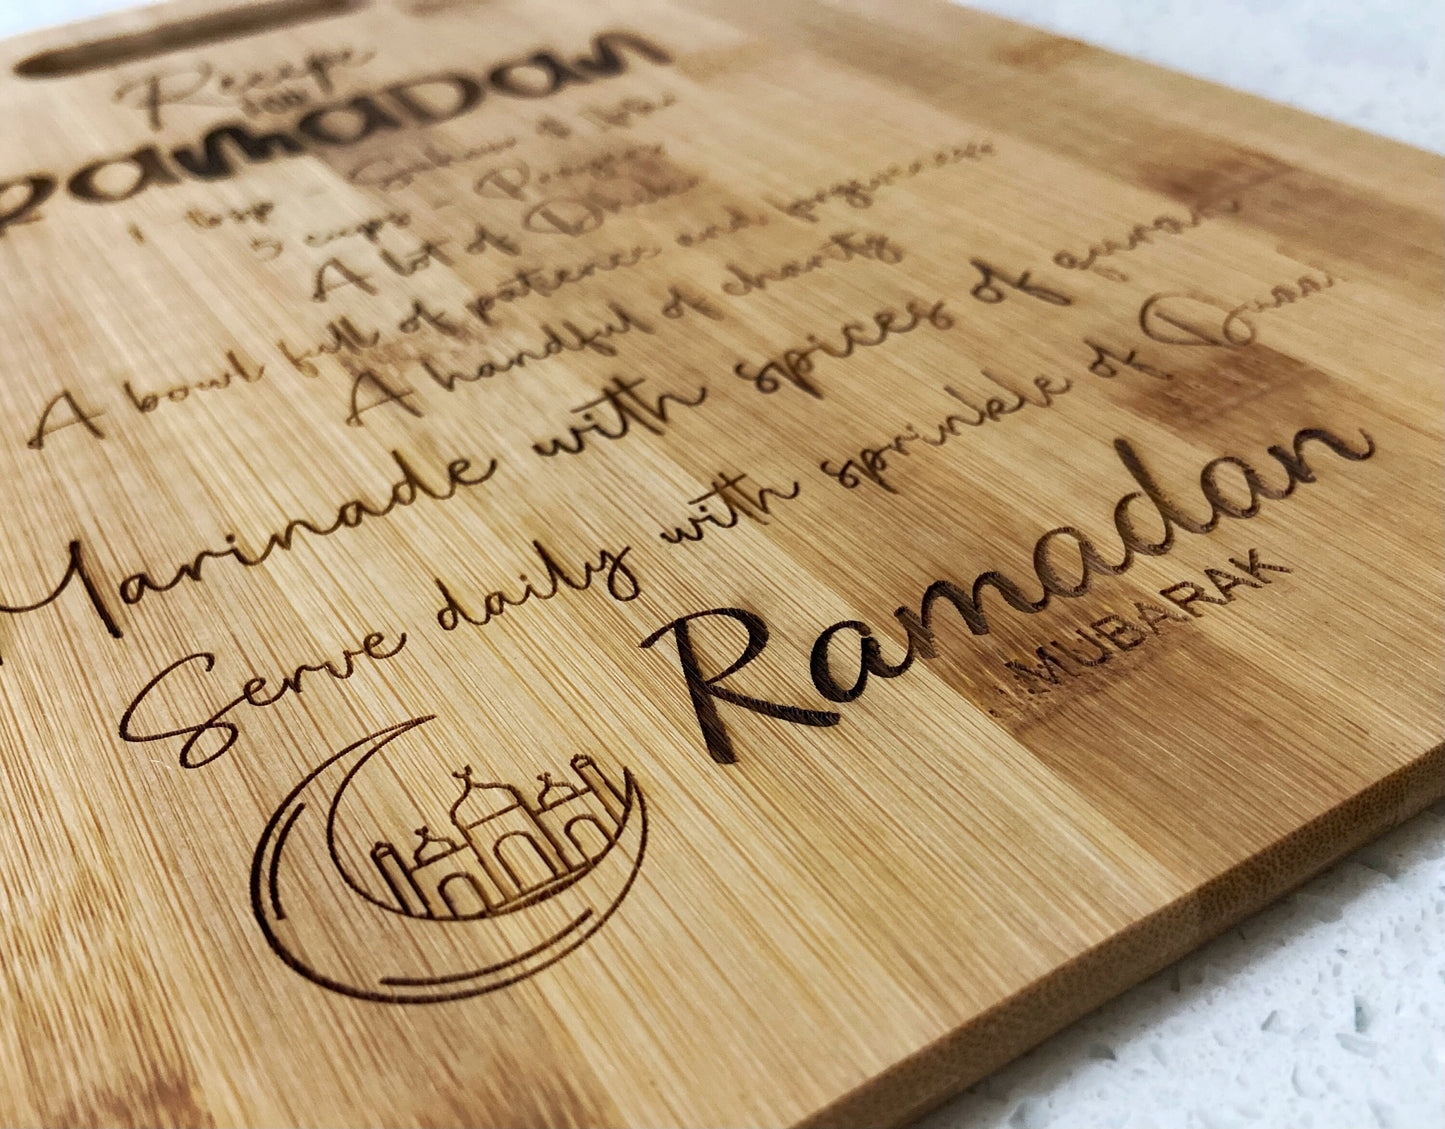 Recip
for
Ramadan
1 tbsp - Suhoor &
5 cups - Prayers
A lot of Dhikr
A bowl full of patience and forgiveness
A handful of charity
Marinade with spices of quran
Serve daily with sprinkle of Duaa.
Ramadan
MUBARAK